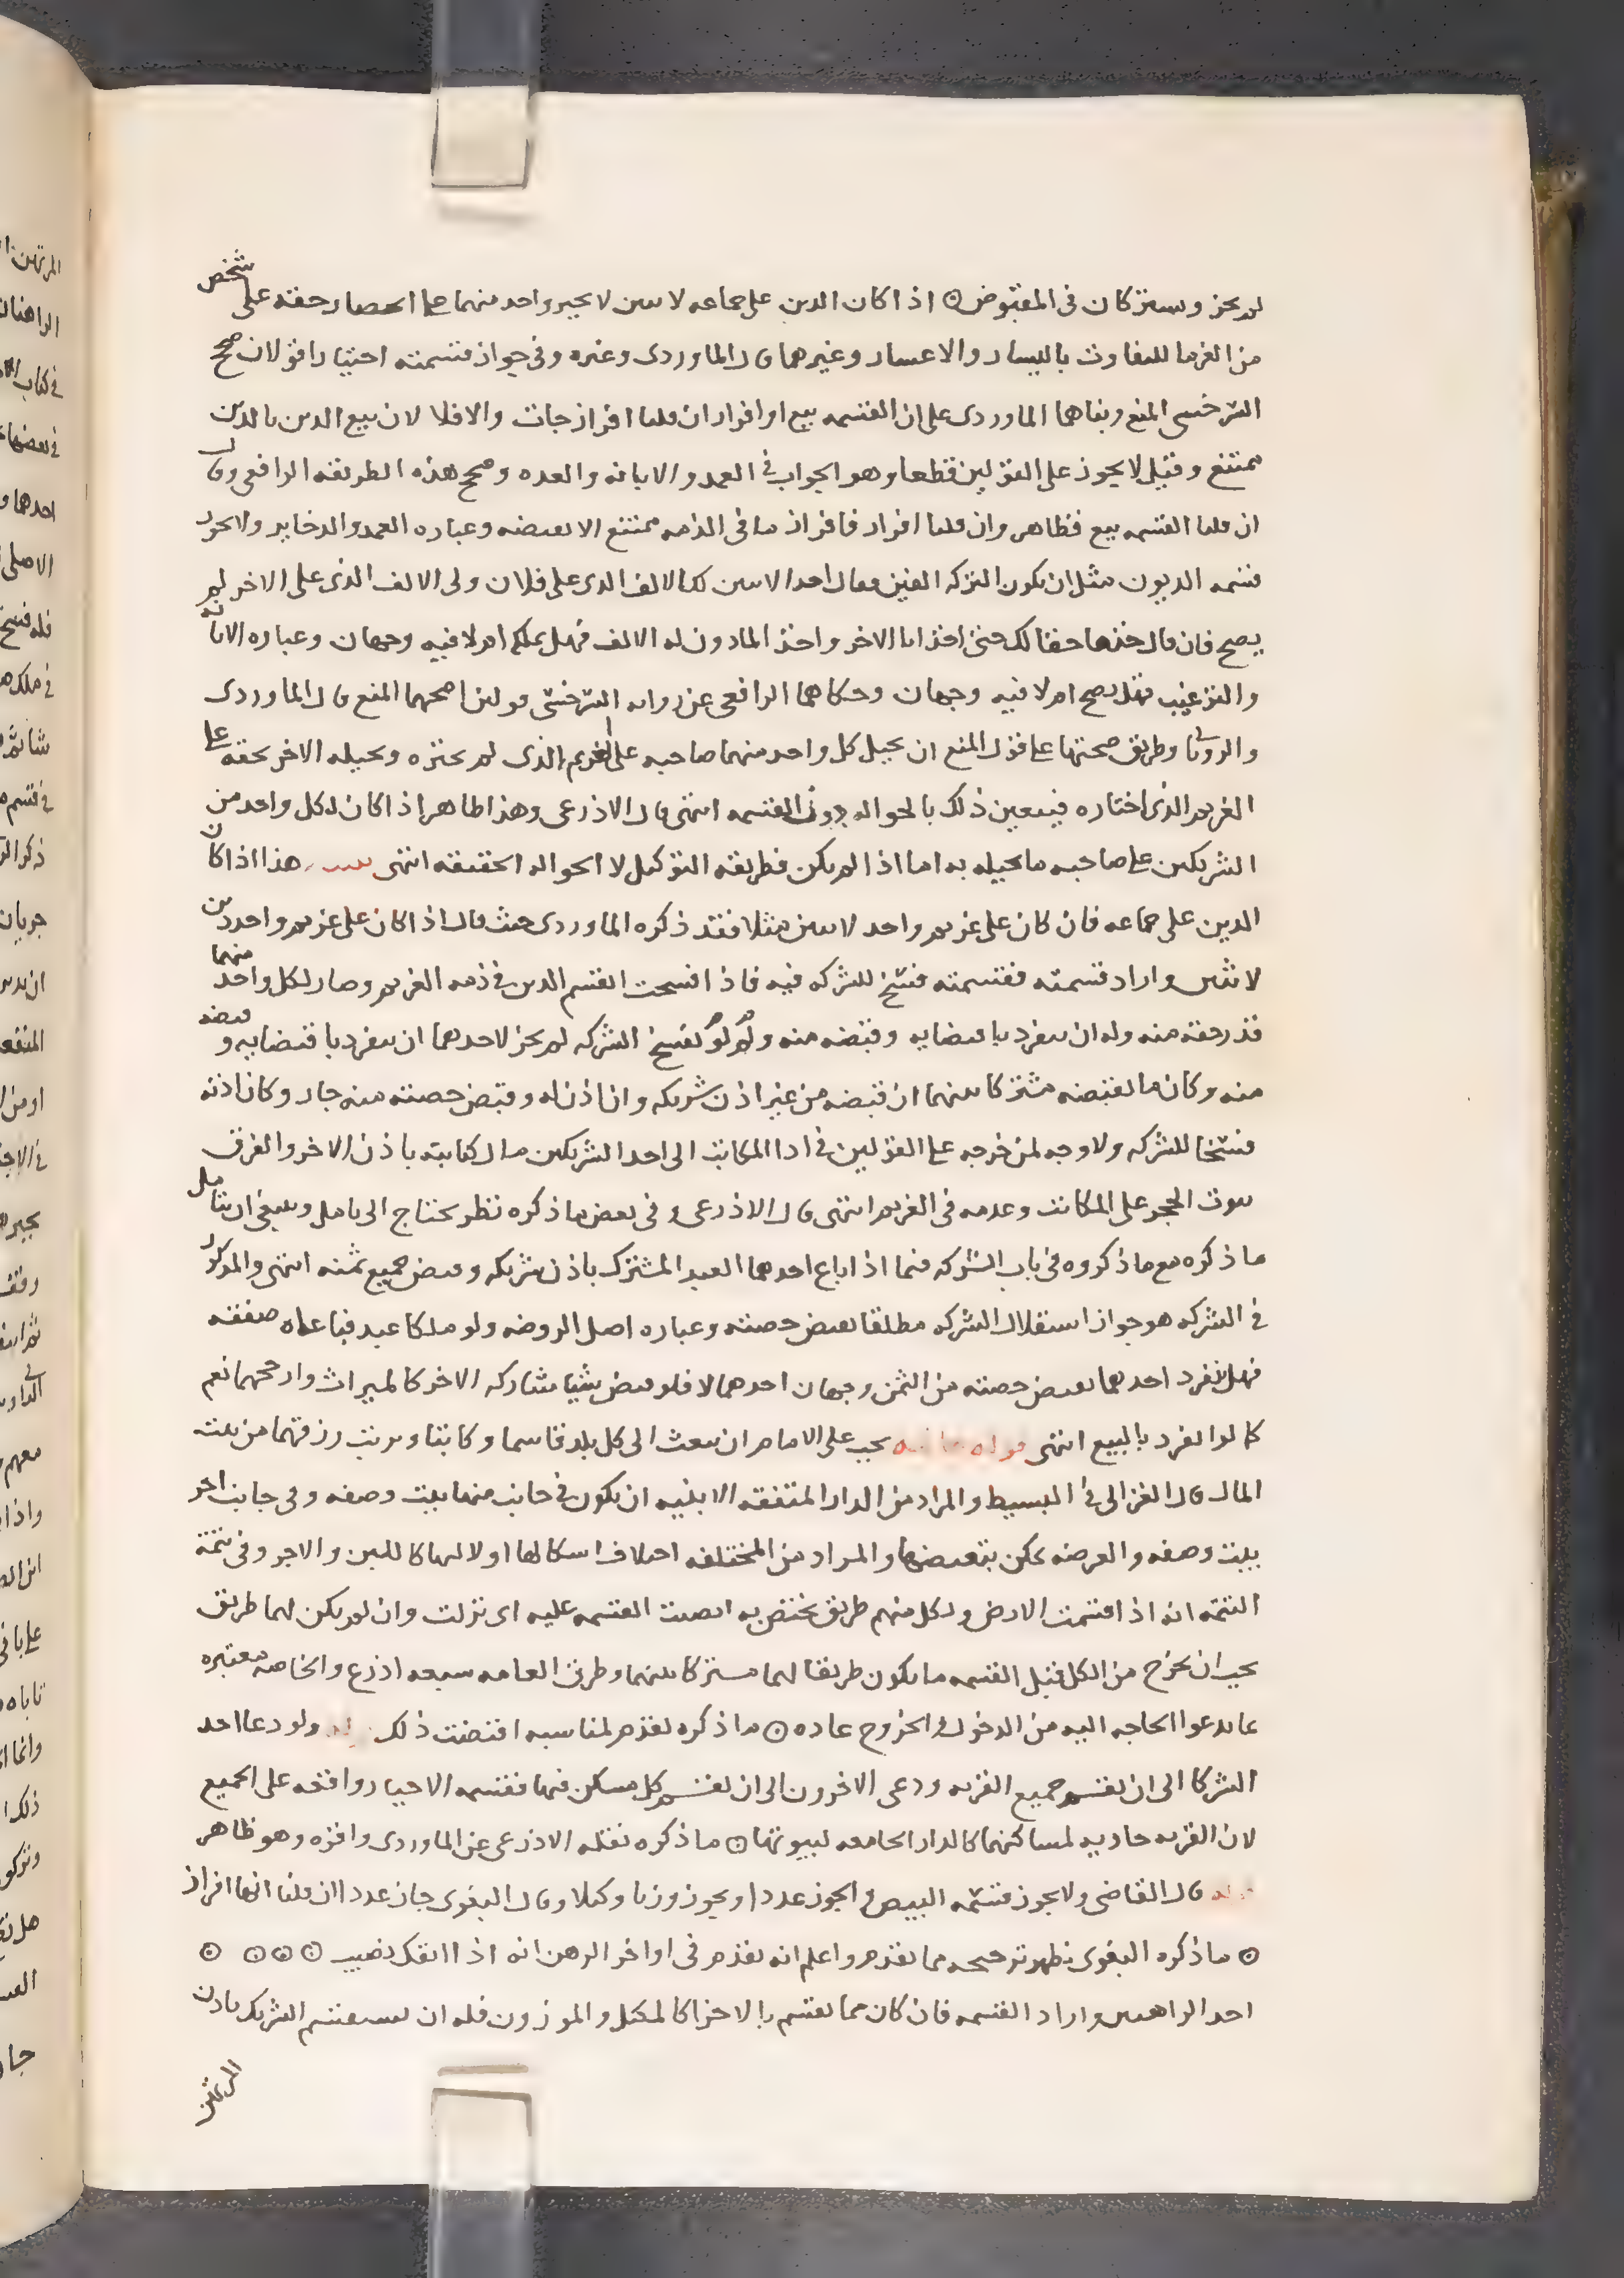 لم يجز ويشتركان في المقبوض ۞ اذا كان الدين على جماعه لاثنين لا يجبر واحد منهما على انحصار حقه على شخص
من الغرما للتفاوت باليسار والاعسار وغيرهما قال الماوردى وغيره وفي جواز قسمته اختيارا قولان صحح
السرخسى المنع وبناهما الماوردى على ان القسمه بيع او افراز ان قلنا افراز جازت والا فلا لان بيع الدين بالدين
ممتنع وقيل لا يجوز على القولين قطعا وهو الجواب في العمد والابانه والعده وصحح هذه الطريقه الرافعى وقال
ان قلنا القسمه بيع فظاهر وان قلنا افراز فافراز ما في الذمه ممتنع الا بقبضه وعباره العمد والدخاير ولا يجوز
قسمه الديون مثل ان يكون التركه الفين فقال احد الاثنين لك الالف الذى على فلان ولى الالف الذى على الاخر لم
يصح فان قال خذها حقا لك حتى اخذ انا الاخر واخذ الماذون له الالف فهل يملكه ام لا فيه وجهان وعباره الابانه
والترغيب فهل يصح ام لا فيه وجهان وحكاهما الرافعى عن روايه السرخسى قولين اصحهما المنع قال الماوردى
والرويانى وطريق صحتها على قول المنع ان يحيل كل واحد منهما صاحبه على الغريم الذى لم يختره ويحيله الاخر بحقه على
الغريم الذى اختاره فيتعين ذلك بالحواله دون القسمه انتهى قال الاذرعى وهذا ظاهر اذا كان لكل واحد من
الشريكين على صاحبه ما يحيله به اما اذا لم يكن فطريقه التوكيل لا الحواله الحقيقه انتهى تنبيه هذا اذا كان
الدين على جماعه فان كان على غريم واحد لاثنين مثلا فقد ذكره الماوردى حيث قال اذا كان على غريم واحد دين
لاثنين واراد قسمته فقسمته فسخ للشركه فيه فاذا افسخت انقسم الدين في ذمه الغريم وصار لكل واحد منهما
قدر حقه منه وله ان ينفرد باقتضايه وقبضه منه ولو لم تفسخ الشركه لم يجز لاحدهما ان ينفرد باقتضايه وقبضه
منه وكان ما يقبضه مشتركا بينهما ان قبضه من غير اذن شريكه وان اذن له وقبض حصته منه جاز وكان اذنه
فسخا للشركه ولا وجه لمن خرجه على القولين في ادا المكاتب الى احد الشريكين مال كتابته باذن الاخر والفرق
ثبوت الحجر على المكاتب وعدمه في الغريم انتهى قال الاذرعى وفي بعض ما ذكره نظر يحتاج الى تامل وينبغى ان يتامل
ما ذكره مع ما ذكروه في باب الشركه فيما اذا باع احدهما العبد المشترك باذن شريكه وقبض جميع ثمنه انتهى والمذكور
في الشركه هو جواز استقلال الشركه مطلقا بقبض حصته وعباره اصل الروضه ولو ملكا عبد فباعاه صفقه
فهل ينفرد احدهما بقبض حصته من الثمن وجهان احدهما لا فلو قبض شيا شاركه الاخر كالميراث وارجحهما نعم
كما لو انفرد بالبيع انتهى قوله يجب على الامام ان يبعث الى كل بلد قاسما وكاتبا ويرتب رزقهما من بيت
المال قال الغزالى في البسيط والمراد من الدار المتفقه الابنيه ان يكون في جانب منها بيت وصفه وفي جانب اخر
بيت وصفه والعرصه يمكن بتبعيضها والمراد من المختلفه اختلاف اشكالها او لالتها كاللبن والاجر وفي تتمة
التتمه انه اذا اقتسمت الارض ولكل منهم طريق يختص به انصبت القسمه عليه اى نزلت وان لم يكن لهما طريق
يجب ان يخرج من الكل قبل القسمه ما يكون طريقا لهما مشتركا بينهما وطرق العامه سبعه اذرع والخاصه معتبره
بما يدعوا الحاجه اليه من الدخول والخروج عاده ۞ ما ذكره تقدم لمناسبه اقتضت ذلك قوله ولو دعا احد
الشركا الى ان يقسم جميع القريه ودعى الاخرون الى ان يقسم كل مسكن فيها فقسمه الاجبار واقعه على الجميع
لان القريه حاويه لمساكنها كالدار الجامعه لبيوتها ۞ ما ذكره نقله الاذرعى عن الماوردى واقره وهو ظاهر
قوله قال القاضى ولا يجوز قسمه البيض والجوز عددا ويجوز وزنا وكيلا وقال البغوى جاز عددا ان قلنا انها افراز
۞ ما ذكره البغوى يظهر ترجيحه مما تقدم واعلم انه تقدم في اواخر الرهن انه اذا انفك نصيب ۞ ۞ ۞ ۞
احد الراهنين واراد القسمه فان كان مما يقسم بالاجزا كالمكيل والموزون فله ان يستقسم الشريك باذن
المرتهن